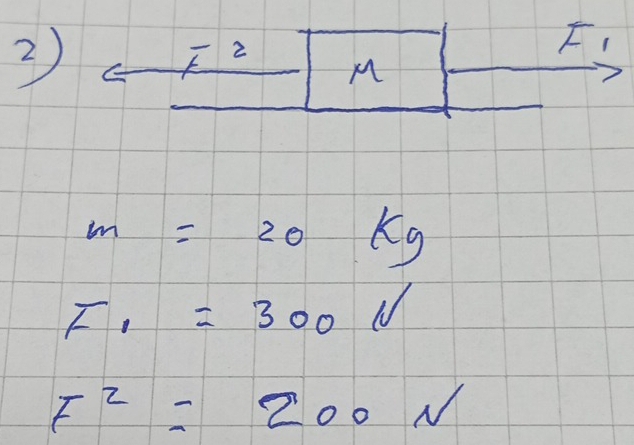 2)
F 2 M F1
m = 20 Kg
F1 = 300 N
F2 = 200 N